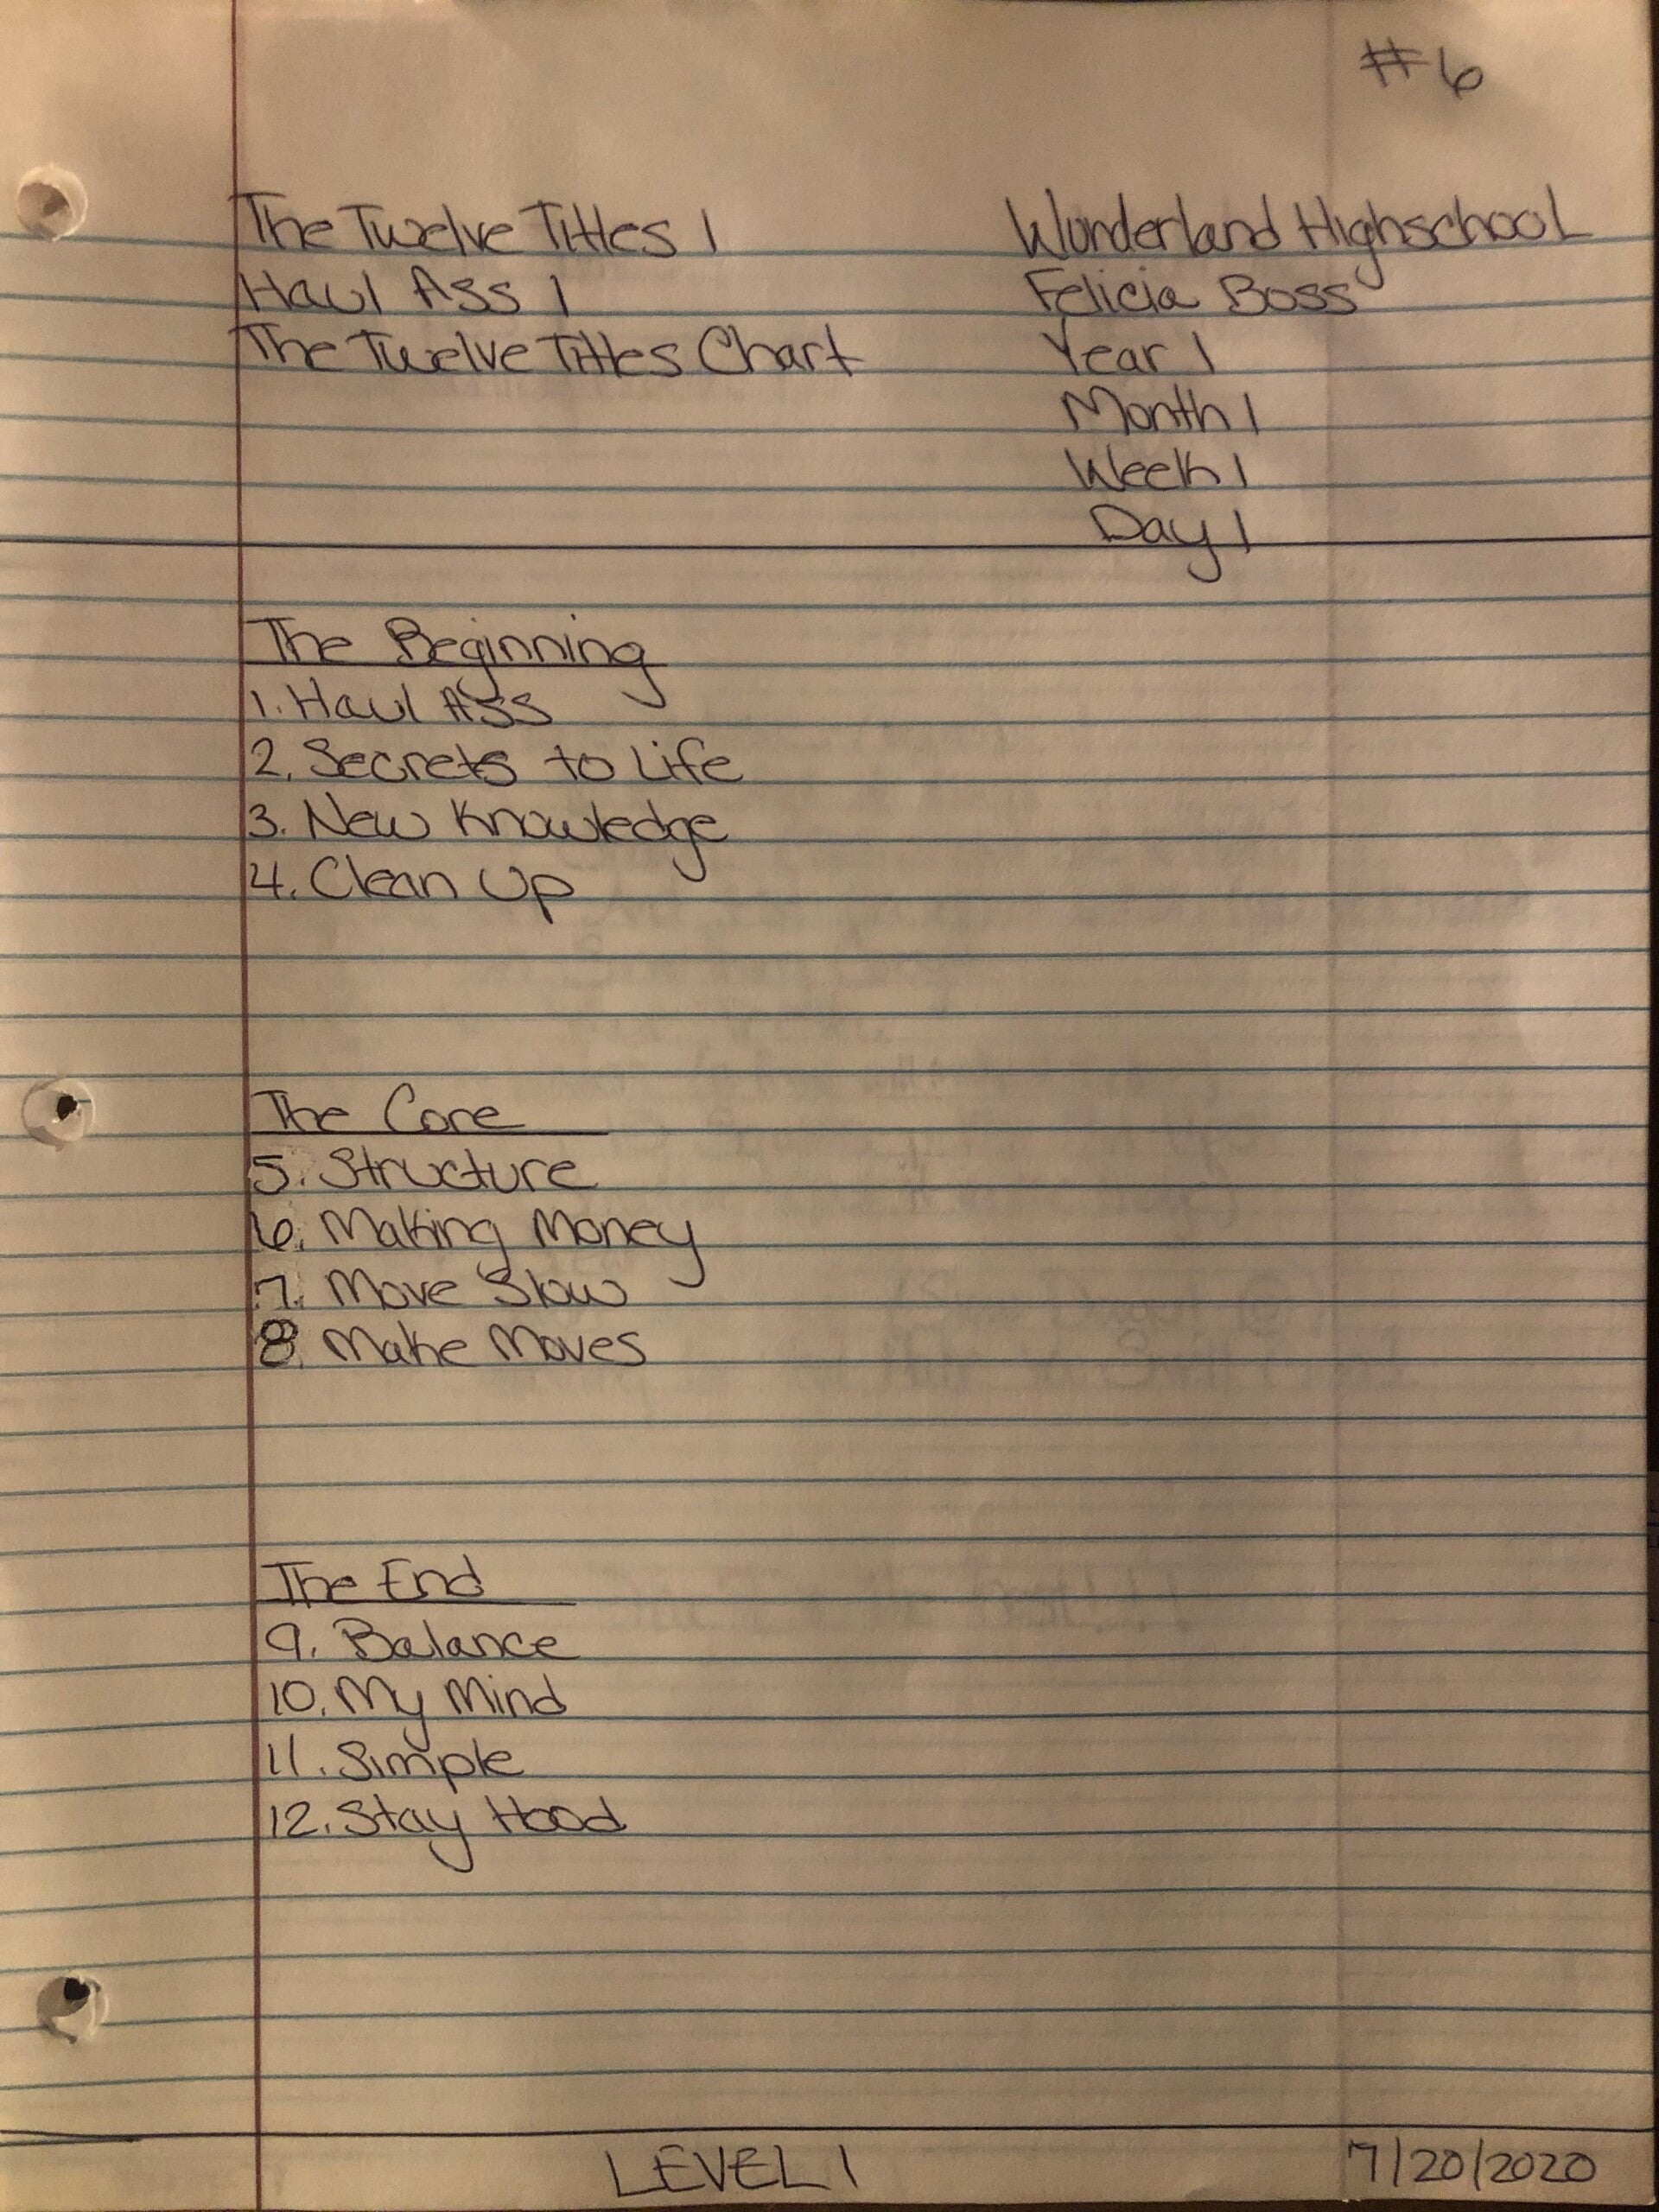 #6
The Twelve Titles 1
Wonderland Highschool
Haul Ass 1
Felicia Boss
The Twelve Titles Chart
Year 1
Month 1
Week 1
Day 1
The Beginning
1. Haul Ass
2. Secrets to Life
3. New Knowledge
4. Clean Up
The Core
5. Structure
6. Making Money
7. Move Slow
8. Make Moves
The End
9. Balance
10. My Mind
11. Simple
12. Stay Hood
LEVEL 1
7/20/2020